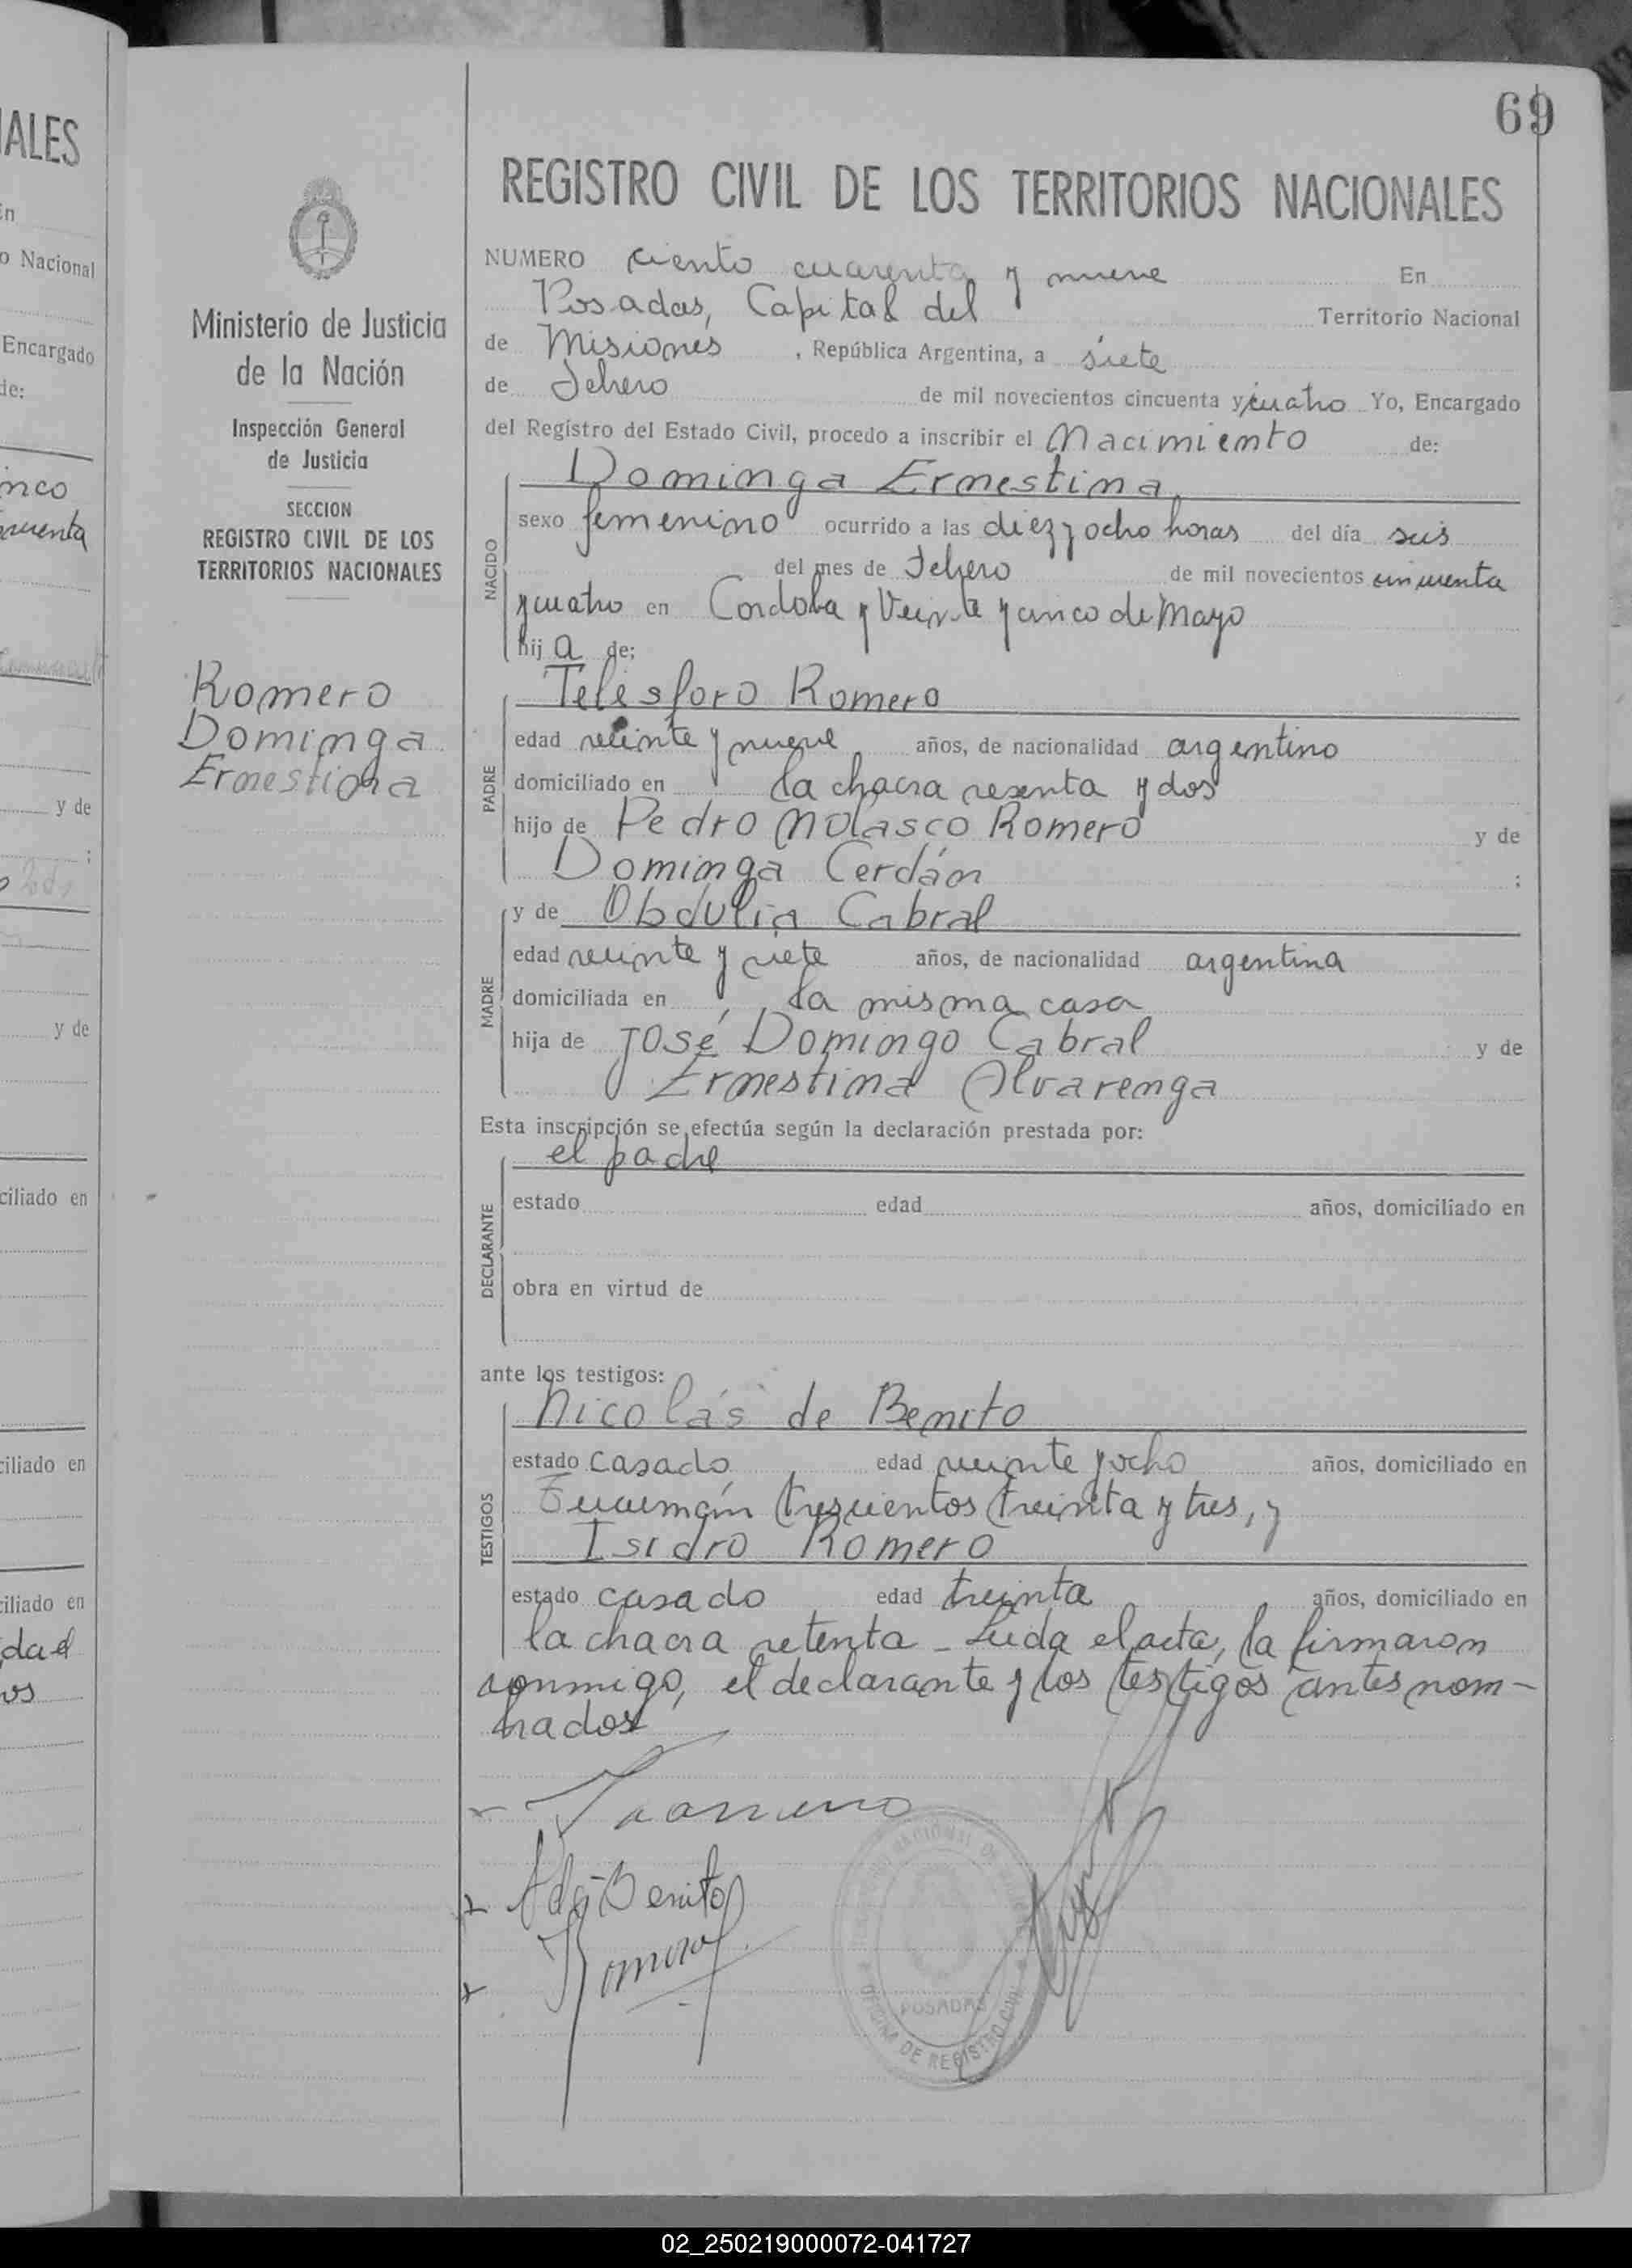 69
REGISTRO CIVIL DE LOS TERRITORIOS NACIONALES
Ministerio de Justicia
de la Nación
Inspección General
de Justicia
SECCION
REGISTRO CIVIL DE LOS
TERRITORIOS NACIONALES
Romero
Dominga
Ernestina
NUMERO ciento cuarenta y nueve En
Posadas, Capital del Territorio Nacional
de Misiones, República Argentina, a siete
de Febrero de mil novecientos cincuenta y cuatro Yo, Encargado
del Registro del Estado Civil, procedo a inscribir el Nacimiento de:
NACIDO
Dominga Ernestina,
sexo femenino ocurrido a las diez y ocho horas del día seis
del mes de Febrero de mil novecientos cincuenta
y cuatro en Cordoba y Veinte y cinco de Mayo
hij a de;
PADRE
Telésforo Romero
edad veinte y nueve años, de nacionalidad argentino
domiciliado en la chacra sesenta y dos
hijo de Pedro Nolasco Romero y de
Dominga Cerdán ;
MADRE
y de Obdulia Cabral
edad veinte y siete años, de nacionalidad argentina
domiciliada en la misma casa
hija de José Domingo Cabral y de
Ernestina Alvarenga
Esta inscripción se efectúa según la declaración prestada por:
DECLARANTE
el padre
estado edad años, domiciliado en
obra en virtud de
ante los testigos:
TESTIGOS
Nicolás de Benito
estado casado edad veinte y ocho años, domiciliado en
Tucumán trescientos treinta y tres, y
Isidro Romero
estado casado edad treinta años, domiciliado en
la chacra setenta - Leida el acta, la firmaron
conmigo, el declarante y los testigos antes nom-
brados
de Benito
Romero
POSADAS
OFICINA DE REGISTRO CIVIL
ALES
En
o Nacional
Encargado
de:
y de
;
y de
ciliado en
ciliado en
ciliado en
dad
os
02_250219000072-041727